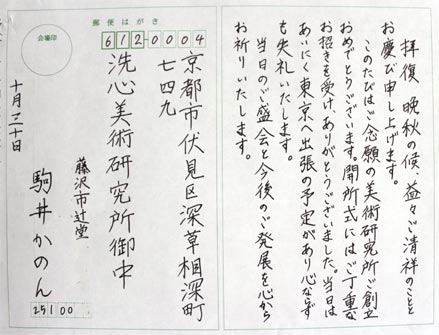 拝復 晩秋の候、益々ご清祥のことと
お慶び申し上げます。
このたびはご念願の美術研究所ご創立
おめでとうございます。開所式にはご丁重な
お招きを受けありがとうございました。当日は
あいにく東京へ出張の予定があり心ならず
も失礼いたします。
当日のご盛会と今後のご発展を心から
お祈りいたします。
郵便はがき
612-0004
会場印
京都市伏見区深草相深町
七四九
洗心美術研究所御中
藤沢市辻堂
駒井かのん
十月二十日
25100